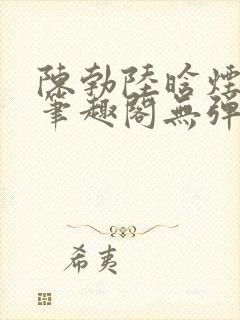 陳勃陸晗煙
筆趣閣無彈
希夷